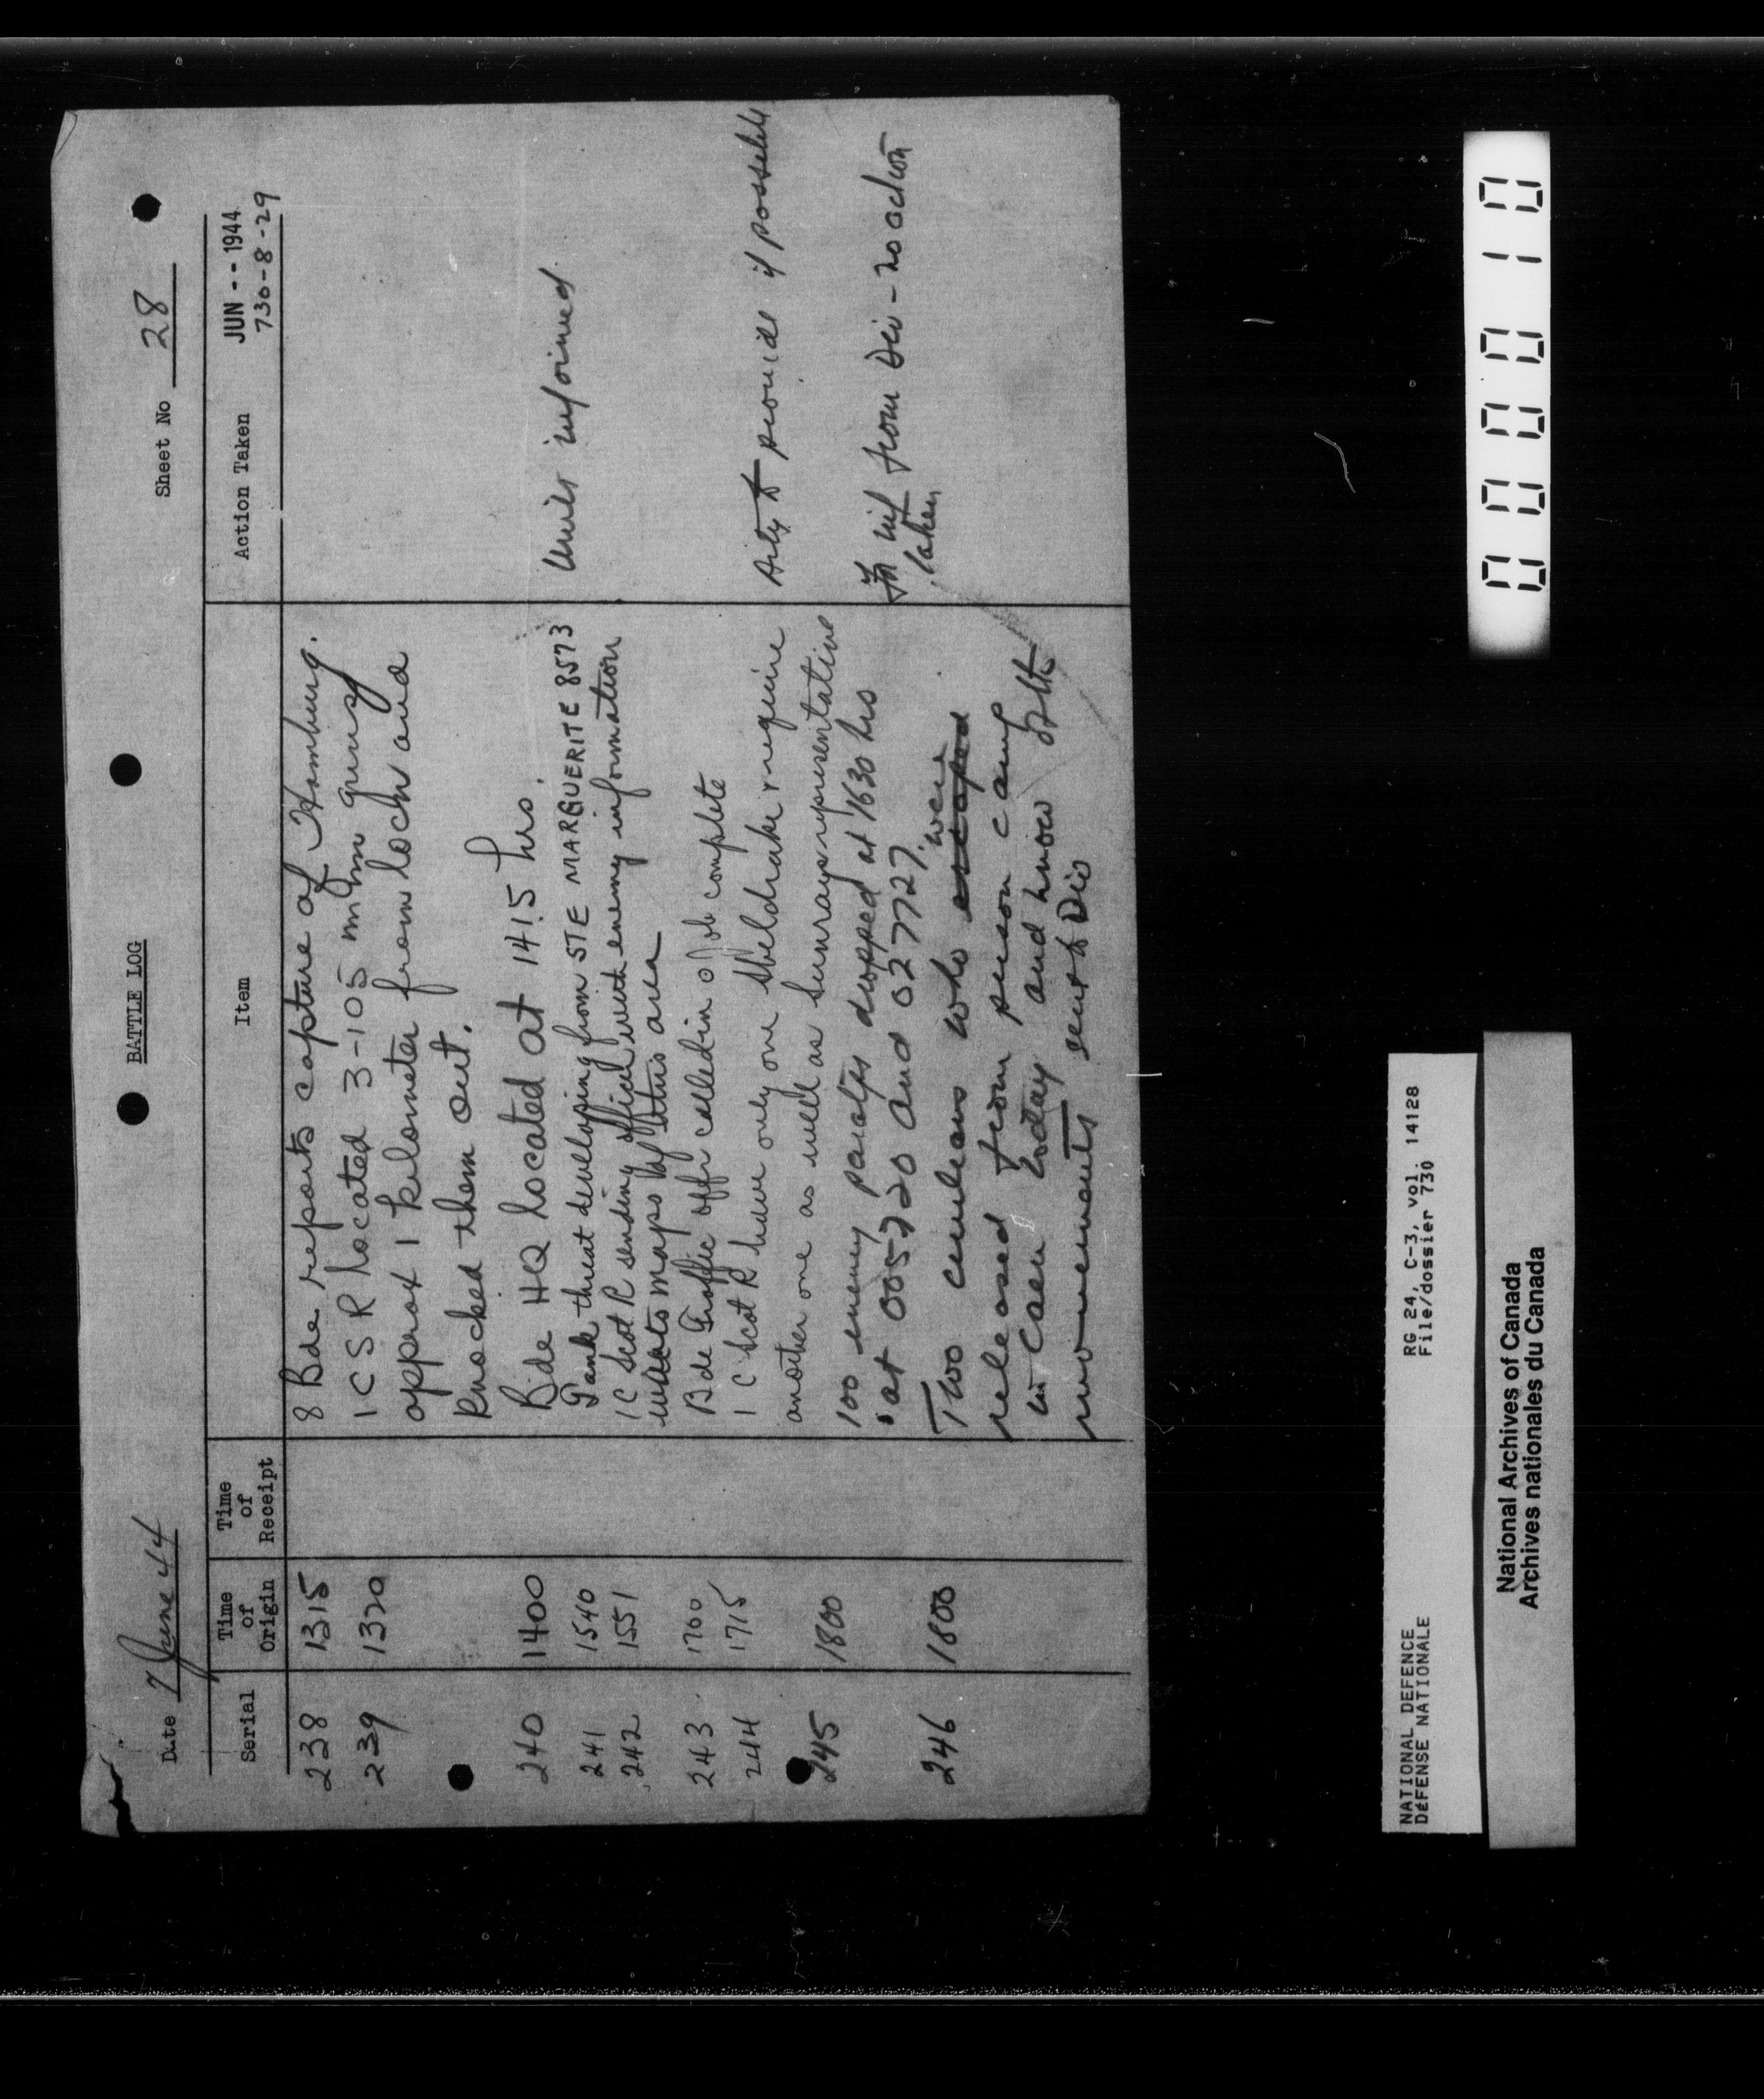 BATTLE LOG
Date 7 June 44
Sheet No 28
Serial
Time of Origin
Time of Receipt
Item
Action Taken
JUN - - 1944
730-8-29
238 1315 8 Bde reports capture of Hamburg.
239 1320 1 C S R located 3-105 mm guns
approx 1 kilometer from locn and
knocked them out.
240 1400 Bde HQ located at 1415 hrs.
241 1540 Tank threat developing from STE MARGUERITE 8573 Units informed
242 1551 1 C Scot R sending officer with enemy information
maps of this area
243 1700 Bde Traffic offr called in job complete
244 1715 1 C Scot R have only one Sheldrake & require Arty to provide if possible
another one as well as Sunrays representative
245 1800 100 enemy paratps dropped at 1630 hrs inf from Div - no action
at 005720 and 027727. taken
246 1800 Two civilians who escaped were
released from prison camp
in Caen today and know
movements sent to Div
0000110
NATIONAL DEFENCE
DÉFENSE NATIONALE
RG 24, C-3, vol. 14128
File/dossier 730
National Archives of Canada
Archives nationales du Canada